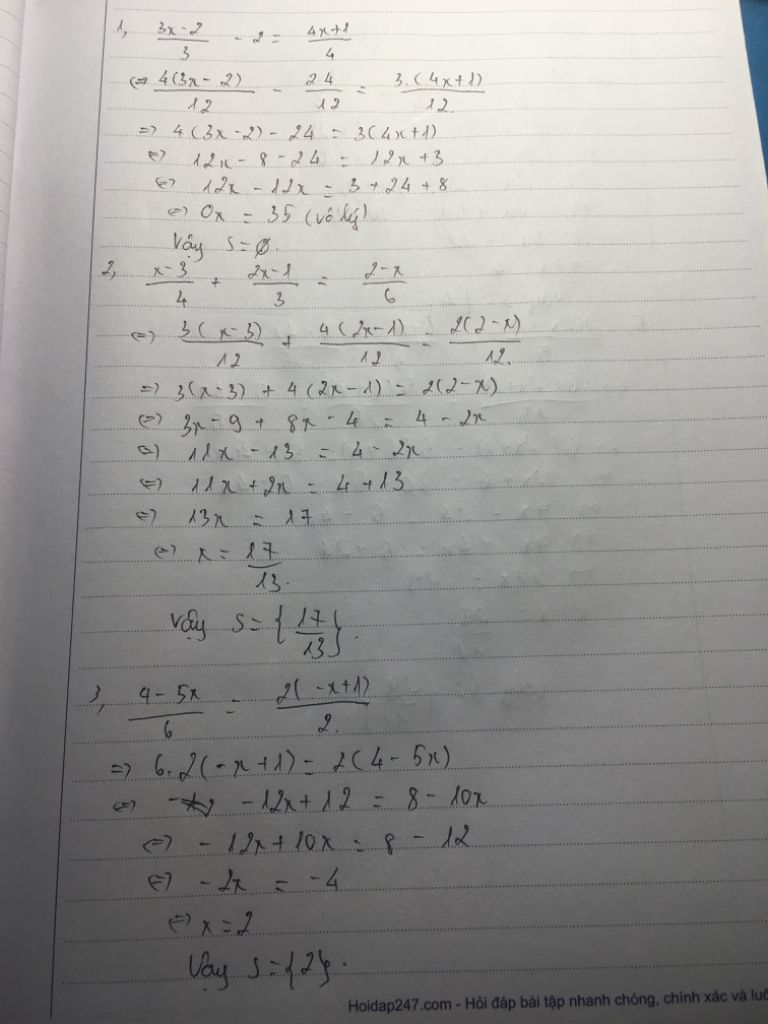 1, (3x-2)/3 - 2 = (4x+1)/4
<=> 4(3x-2)/12 - 24/12 = 3.(4x+1)/12.
=> 4(3x-2) - 24 = 3(4x+1)
<=> 12x - 8 - 24 = 12x + 3
<=> 12x - 12x = 3 + 24 + 8
<=> 0x = 35 (vô lý)
Vậy S = ∅.
2, (x-3)/4 + (2x-1)/3 = (2-x)/6
<=> 3(x-3)/12 + 4(2x-1)/12 = 2(2-x)/12.
=> 3(x-3) + 4(2x-1) = 2(2-x)
<=> 3x - 9 + 8x - 4 = 4 - 2x
<=> 11x - 13 = 4 - 2x
<=> 11x + 2x = 4 + 13
<=> 13x = 17
<=> x = 17/13.
Vậy S = {17/13}.
3, (4-5x)/6 = 2(-x+1)/2.
=> 6.2(-x+1) = 2(4-5x)
<=> -12x + 12 = 8 - 10x
<=> -12x + 10x = 8 - 12
<=> -2x = -4
<=> x = 2
Vậy S = {2}.
Hoidap247.com - Hỏi đáp bài tập nhanh chóng, chính xác và